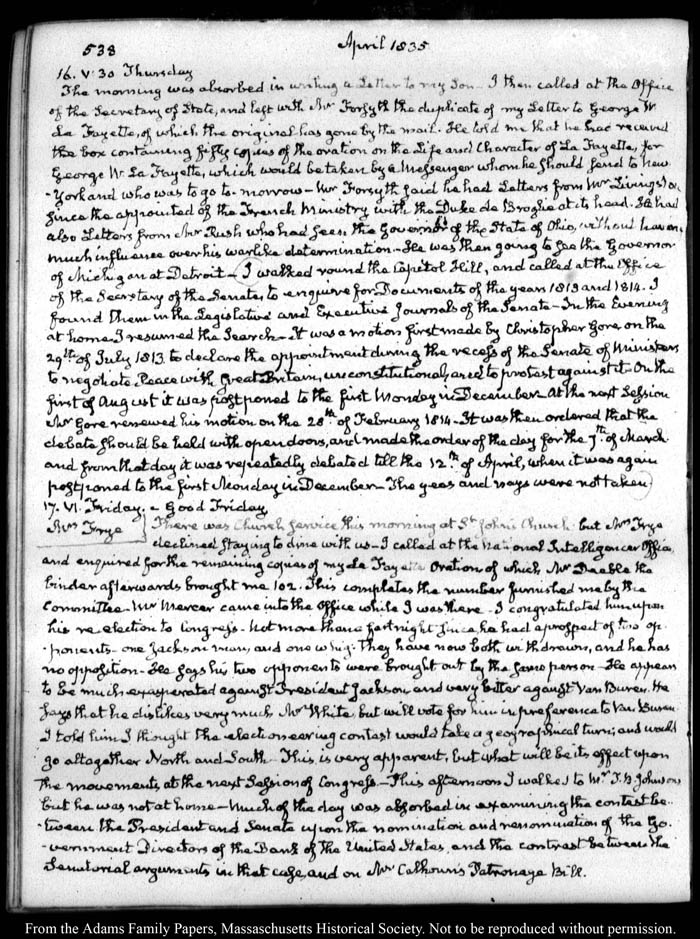 538 April 1835
16. V:30 Thursday
The morning was absorbed in writing a Letter to my Son – I then called at the Office
of the Secretary of State, and left with Mr Forsyth the duplicate of my Letter to George W.
La Fayette, of which the original has gone by the mail. He told me that he had received
the box containing fifty copies of the oration on the Life and Character of La Fayette, for
George W. La Fayette, which would be taken by a Messenger whom he should send to New-
-York and who was to go to-morrow – Mr Forsyth said he had Letters from Mr Livingston
since the appointed of the French Ministry with the Duke de Broglie at its head. He had
also Letters from Mr Rush who had seen the Governor of the State of Ohio, without having
much influence over his warlike determination – He was then going to see the Governor
of Michigan at Detroit – I walked round the Capitol Hill, and called at the Office
of the Secretary of the Senate, to enquire for Documents of the years 1813 and 1814. I
found them in the Legislative and Executive Journals of the Senate – In the Evening
at home I resumed the Search – It was a motion first made by Christopher Gore, on the
29th of July 1813 to declare the appointment during the recess of the Senate of Ministers
to negotiate Peace with Great Britain, unconstitutional, and to protest against it. On the
first of August it was postponed to the first Monday in December – At the next Session
Mr Gore renewed his motion on the 28th of February 1814 – It was then ordered that the
debate should be held with open doors, and made the order of the day for the 7th of March
and from that day it was repeatedly debated till the 12th of April, when it was again
postponed to the first Monday in December – The yeas and nays were not taken
17. VI. Friday. – Good Friday
Mrs Frye There was Church service this morning at St John's Church but Mrs Frye
declined staying to dine with us – I called at the National Intelligencer Office
and enquired for the remaining copies of my La Fayette Oration of which Mr the
binder afterwards brought me 102. This completes the number furnished me by the
Committee – Mr Mercer came into the Office while I was there – I congratulated him upon
his re-election to Congress – Not more than a fortnight since, he had a prospect of two op-
-ponents – one Jackson man, and one whig. They have now both withdrawn, and he has
no opposition – He says his two opponents were brought out by the same person – He appears
to be much exasperated against President Jackson, and very bitter against Van Buren. He
says that he dislikes very much Mr White but will vote for him in preference to Van Buren
I told him I thought the electioneering contest would take a geographical turn, and would
go altogether North and South – This is very apparent, but what will be its effect upon
the movements at the next Session of Congress – This afternoon I walked to Mr Johnson
but he was not at home – Much of the day was absorbed in examining the contest be-
-tween the President and Senate upon the nomination and renomination of the Go-
-vernment Directors of the Bank of the United States, and the contrast between the
Senatorial arguments in that case, and on Mr Calhoun's Patronage Bill.
From the Adams Family Papers, Massachusetts Historical Society. Not to be reproduced without permission.